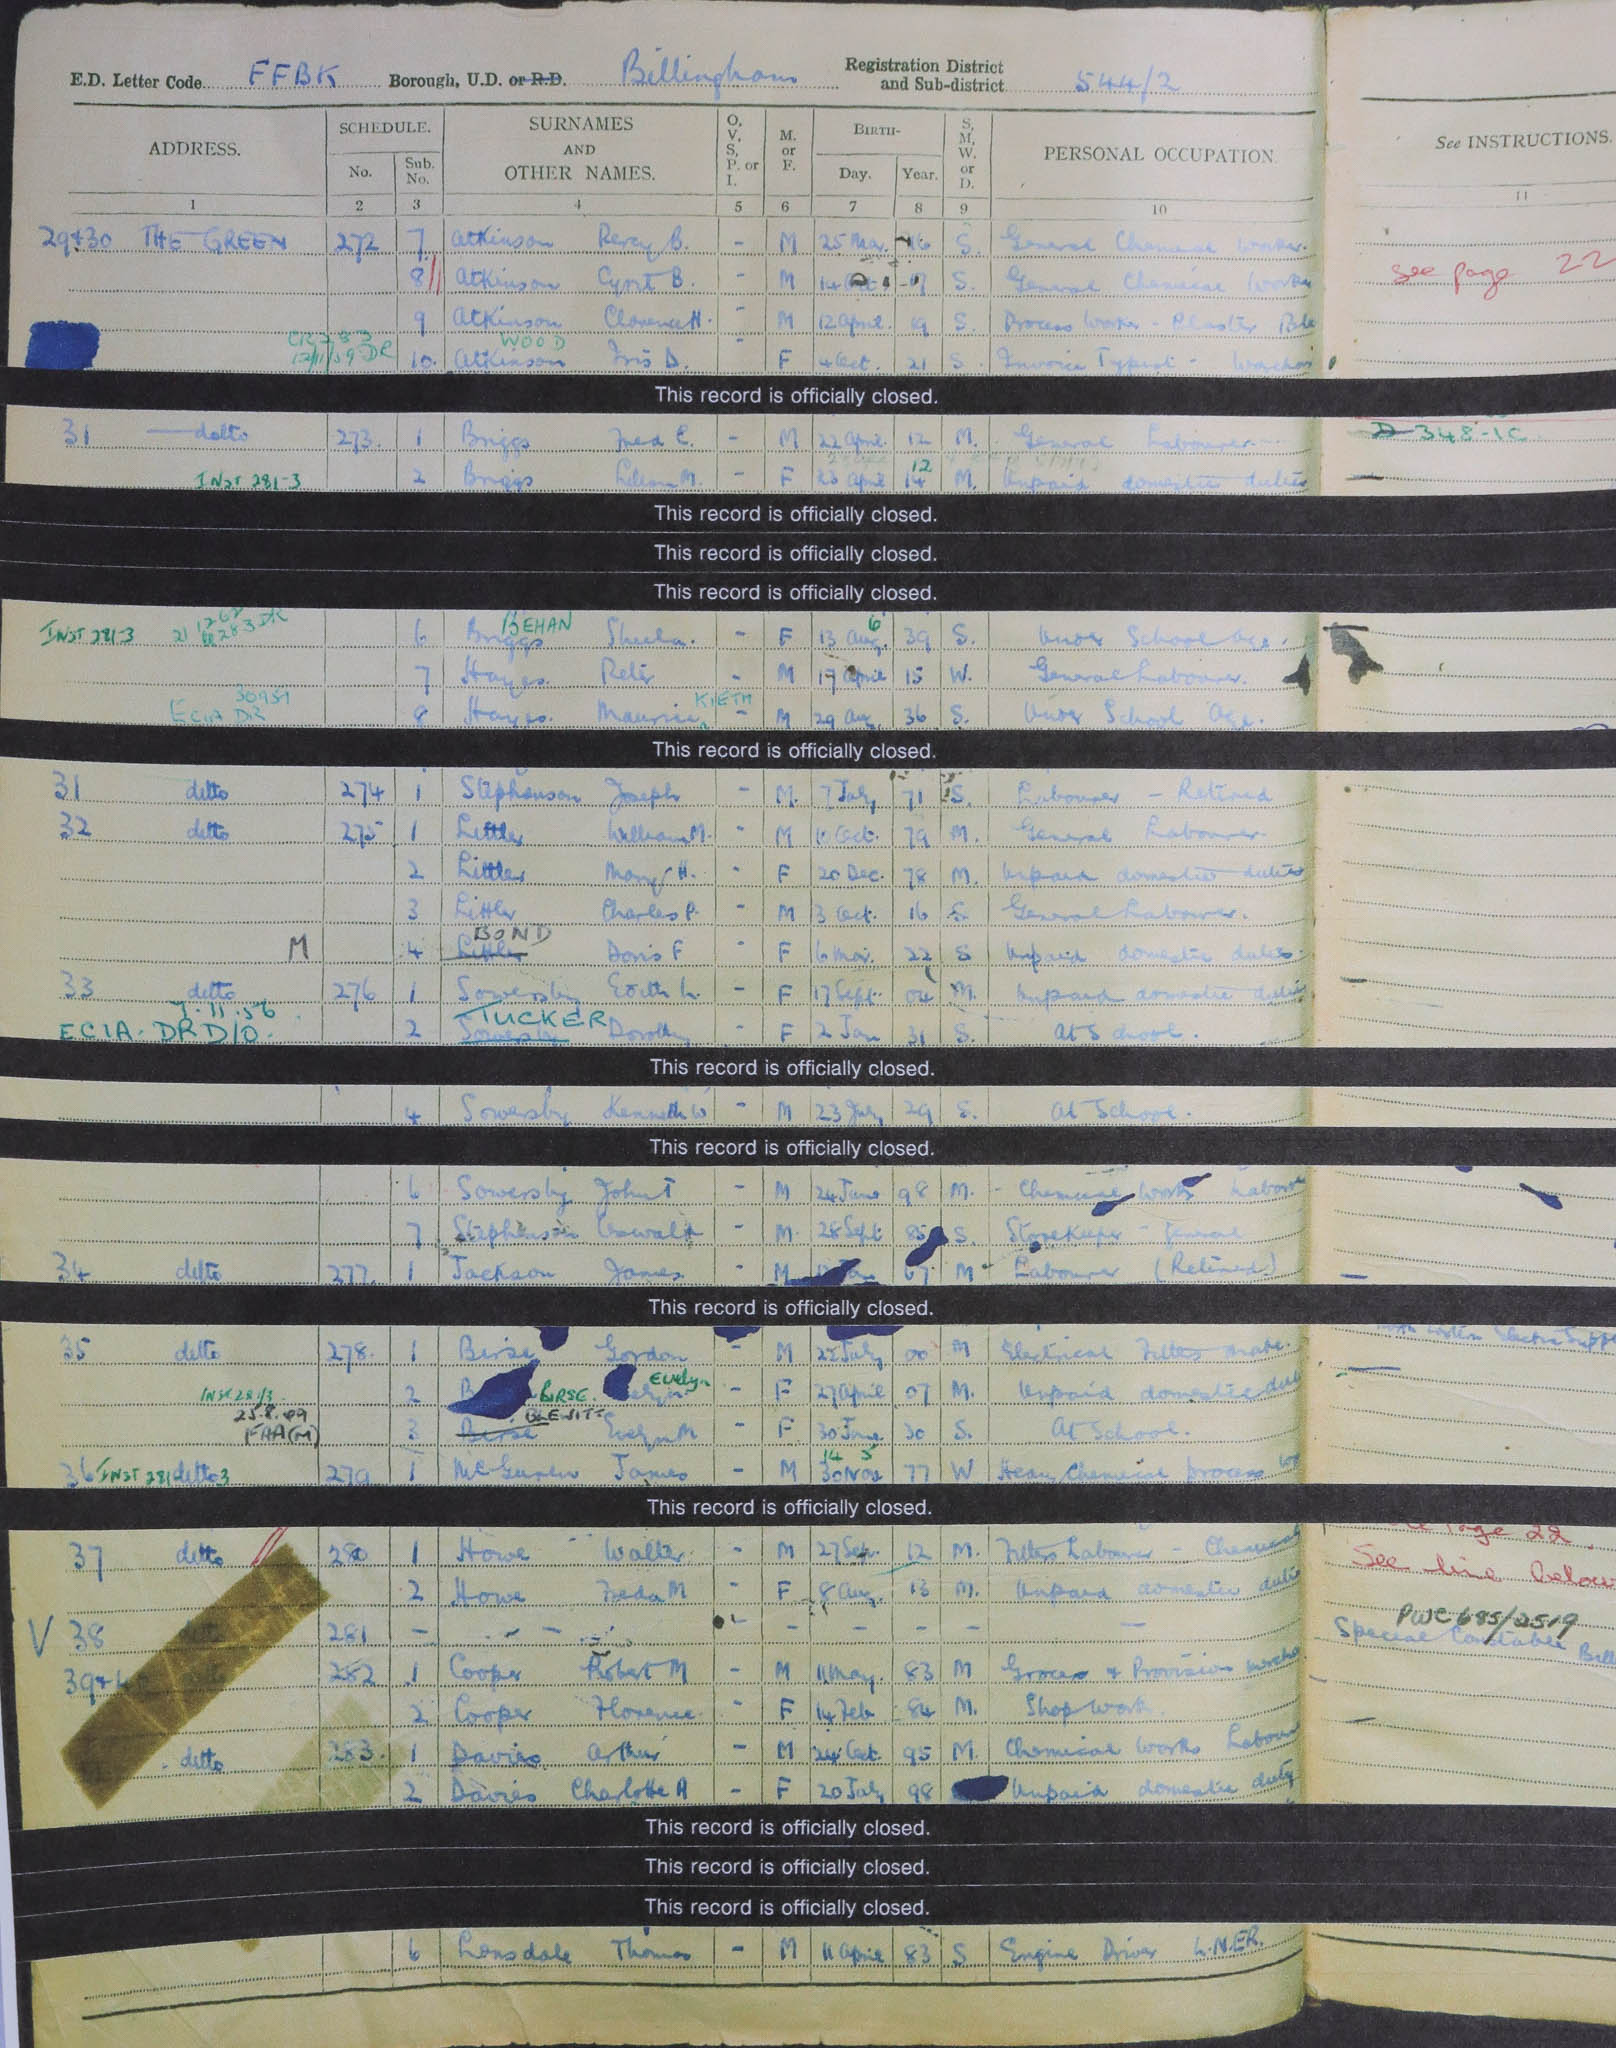 E.D. Letter Code FFBK Borough, U.D. or R.D. Billingham Registration District and Sub-district 544/2
ADDRESS. SCHEDULE. No. Sub. No. SURNAMES AND OTHER NAMES. O, V, S, P. or I. M. or F. BIRTH- Day. Year. S, M, W. or D. PERSONAL OCCUPATION. See INSTRUCTIONS.
1 2 3 4 5 6 7 8 9 10 11
29+30 THE GREEN 272 7 Atkinson Percy B. - M 25 Mar. 16 S. General Chemical Worker.
8 Atkinson Cyril B. - M 14 Oct. 17 S. General Chemical Worker see page 22
9 Atkinson Clarence H. - M 12 April 19 S. Process Worker - Plaster
CR 283 WOOD
12/11/59 DR 10. Atkinson Iris D. F 4 Oct. 21 S. Invoice Typist -
This record is officially closed.
31 ditto 273. 1 Briggs Fred C. - M 22 April 12 M. General Labourer D 348-1C
12
INST 281-3 2 Briggs Lilian M. F 23 April 14 M. Unpaid domestic duties
This record is officially closed.
This record is officially closed.
This record is officially closed.
BEHAN 6
INST 281-3 6 Briggs Sheila. - F 13 Aug. 39 S. Under School age.
7 Hayes. Peter - M 17 April 15 W. General Labourer.
30951 KIETH
ECIA DR 8 Hayes. Maurice - M 29 Aug 36 S. Under School Age.
This record is officially closed.
31 ditto 274 1 Stephenson Joseph - M. 7 July 71 S. Labourer - Retired
32 ditto 275 1 Littler William M. - M 10 Oct. 79 M. General Labourer
2 Littler Mary H. - F 20 Dec. 78 M. Unpaid domestic duties
3 Littler Charles P. - M 3 Oct. 16 S. General Labourer.
BOND
M 4 Littler Doris F - F 6 Mar. 22 S Unpaid domestic duties
33 ditto 276 1 Sowersby Edith L. - F 17 Sept. 04 M. Unpaid domestic duties
7.11.56 TUCKER
ECIA. DR D10. 2 Sowersby Dorothy F 2 Jan 31 S. At School.
This record is officially closed.
4 Sowersby Kenneth W - M 23 July 29 S. At School.
This record is officially closed.
6 Sowersby John T - M 24 June 98 M. - Chemical Works Labourer
7 Stephenson Oswald - M. 28 Sept. 85 S. Storekeeper - General
34 ditto 277. 1 Jackson James M 67 M Labourer (Retired)
This record is officially closed.
35 ditto 278. 1 Birse Gordon - M 22 July 00 M Electrical Fitters mate.
INST 281/3 2 BIRSE. Evelyn - F 27 April 07 M. Unpaid domestic duties
25.8.49 BLEWITT
FAA(M) 3 Birse Evelyn M F. 30 June 30 S. At School.
14 5
36 INST 281 ditto 3 279 1 James - M 30 Nov 77 W Heavy Chemical process
This record is officially closed.
page 22.
37 ditto 280 1 Howe Walter - M 27 Sep. 12 M. Fitters Labourer - Chemical See line below
2 Howe Freda M F 8 Aug. 13 M. Unpaid domestic duties
PWC 685/2519
V 38 281 - - - - - - - - Special Constable
282 1 Cooper Robert M - M 11 May. 83 M Grocer & Provision
2 Cooper Florence. - F 14 Feb 84 M. Shop Work.
ditto 283. 1 Davies Arthur - M 24 Oct. 95 M. Chemical Works Labourer
2 Davies Charlotte A - F 20 July 98 Unpaid domestic duty
This record is officially closed.
This record is officially closed.
This record is officially closed.
6 Lonsdale Thomas - M 11 April 83 S Engine Driver L.N.E.R.